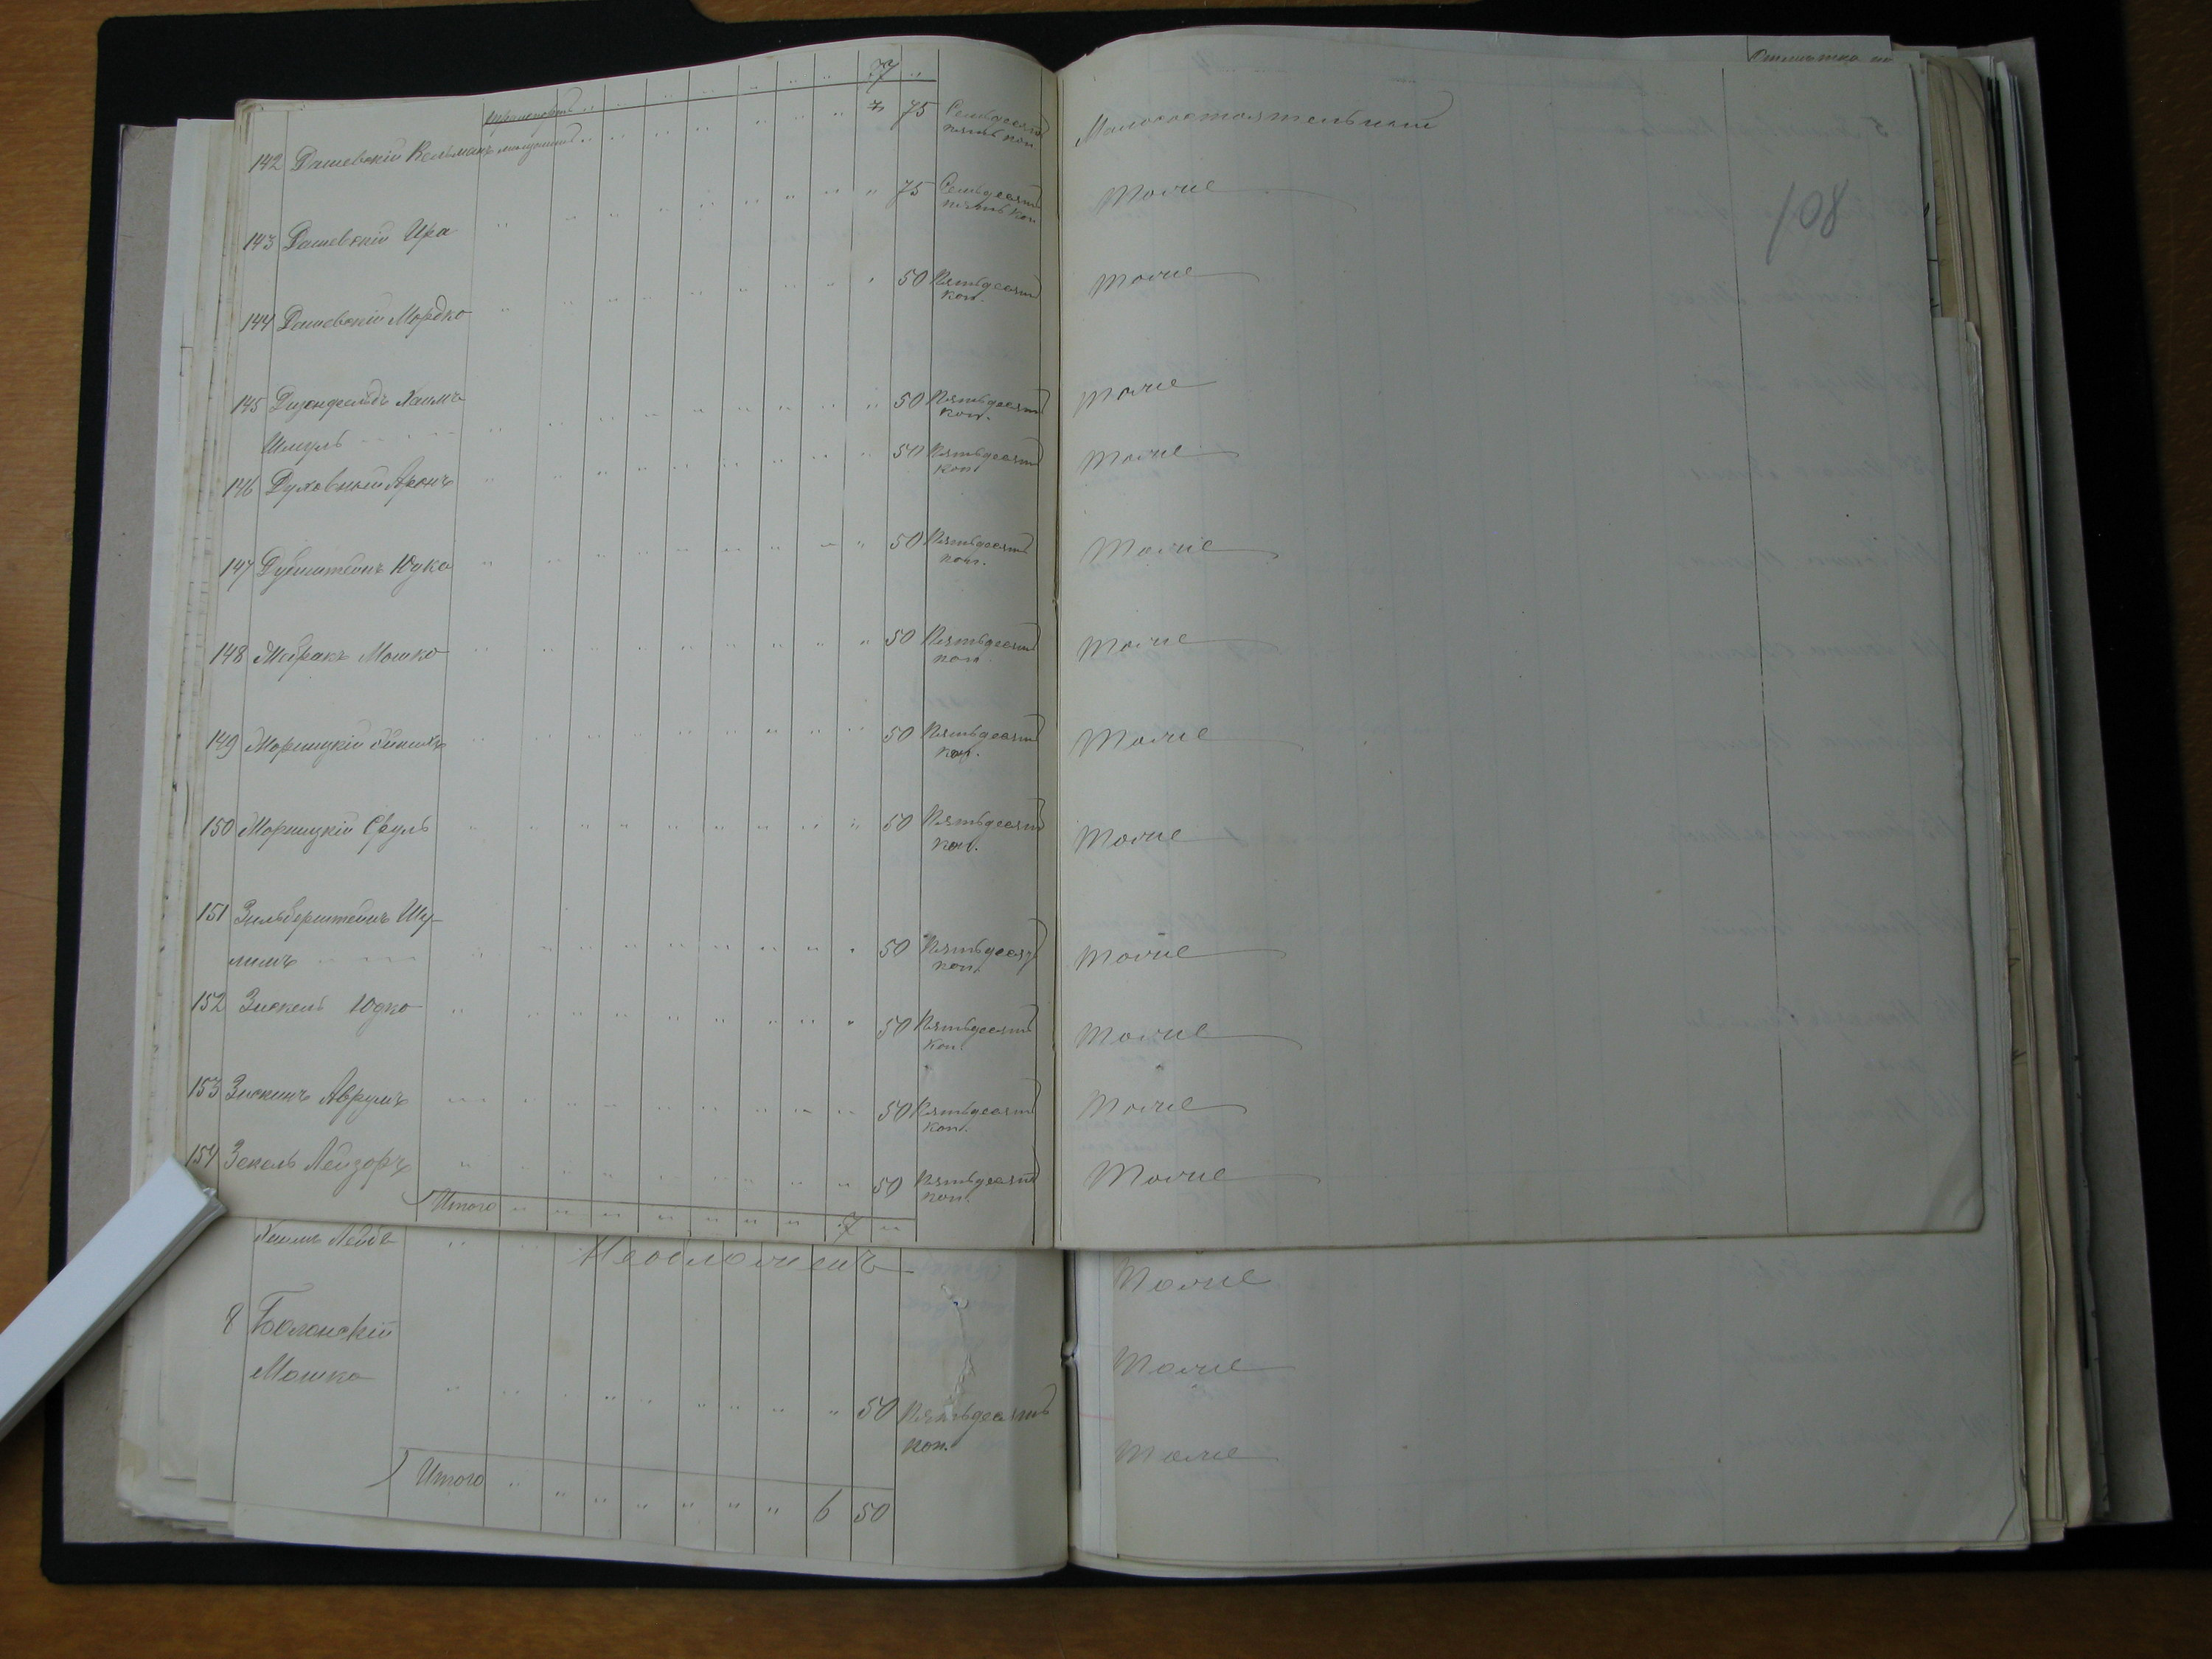 77 ..
142 Дашевскій Кельманъ 75 Семьдесятъ пять коп. Малосостоятельный
143 Дашевскій Ира 75 Семьдесятъ пять коп. Тоже
144 Дашевскій Мордко 50 Пятьдесятъ коп. Тоже
145 Хаимъ 50 Пятьдесятъ коп. Тоже
Шмуль
146 Духовный Аронъ 50 Пятьдесятъ коп. Тоже
147 Дубинштейнъ Юдко 50 Пятьдесятъ коп. Тоже
148 Мошко 50 Пятьдесятъ коп. Тоже
149 50 Пятьдесятъ коп. Тоже
150 Сруль 50 Пятьдесятъ коп. Тоже
151 Зильберштейнъ Шу-
лимъ 50 Пятьдесятъ коп. Тоже
152 Юдко 50 Пятьдесятъ коп. Тоже
153 Зискинъ Аврумъ 50 Пятьдесятъ коп. Тоже
154 Лейзоръ 50 Пятьдесятъ коп. Тоже
Итого 7 ..
108
Хаимъ Лейба Тоже
8
Мошко 50 Пятьдесятъ коп. Тоже
Тоже
Итого 6 50